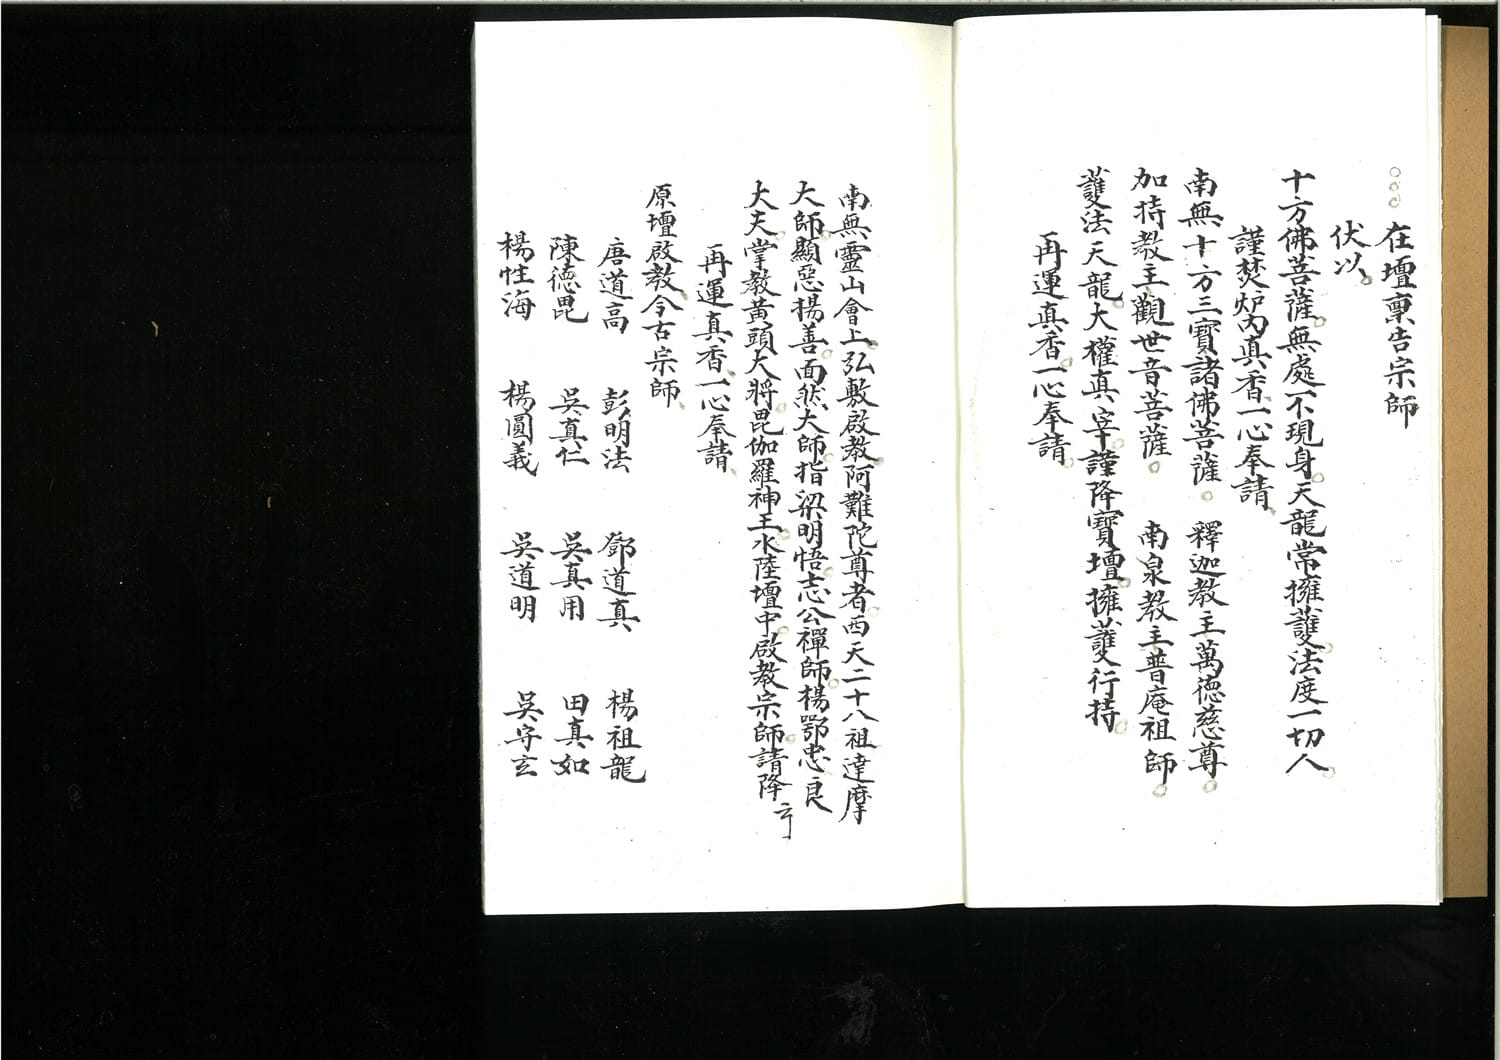 ○○○在壇稟告宗師
伏以。
十方佛菩薩。無處不現身。天龍常擁護。法度一切人。
謹焚炉內真香、一心奉請、
南無十方三寶諸佛菩薩。釋迦教主萬德慈尊。
加持教主觀世音菩薩。南泉教主普庵祖師。
護法天龍。大權真宰。謹降寶壇。擁護行持。
再運真香。一心奉請。
南無靈山會上。弘敷啟教阿難陀尊者。西天二十八祖達摩
大師。顯惡揚善。面然大師。指梁明悟。志公禪師。楊鄂忠良
大夫。掌教黃頭大將。毘伽羅神王。水陸壇中。啟教宗師。請降
再運真香、一心奉請、
原壇啟教今古宗師、
唐道高 彭明法 鄧道真 楊祖龍
陳德毘 吳真仁 吳真用 田真如
楊性海 楊圓義 吳道明 吳守玄